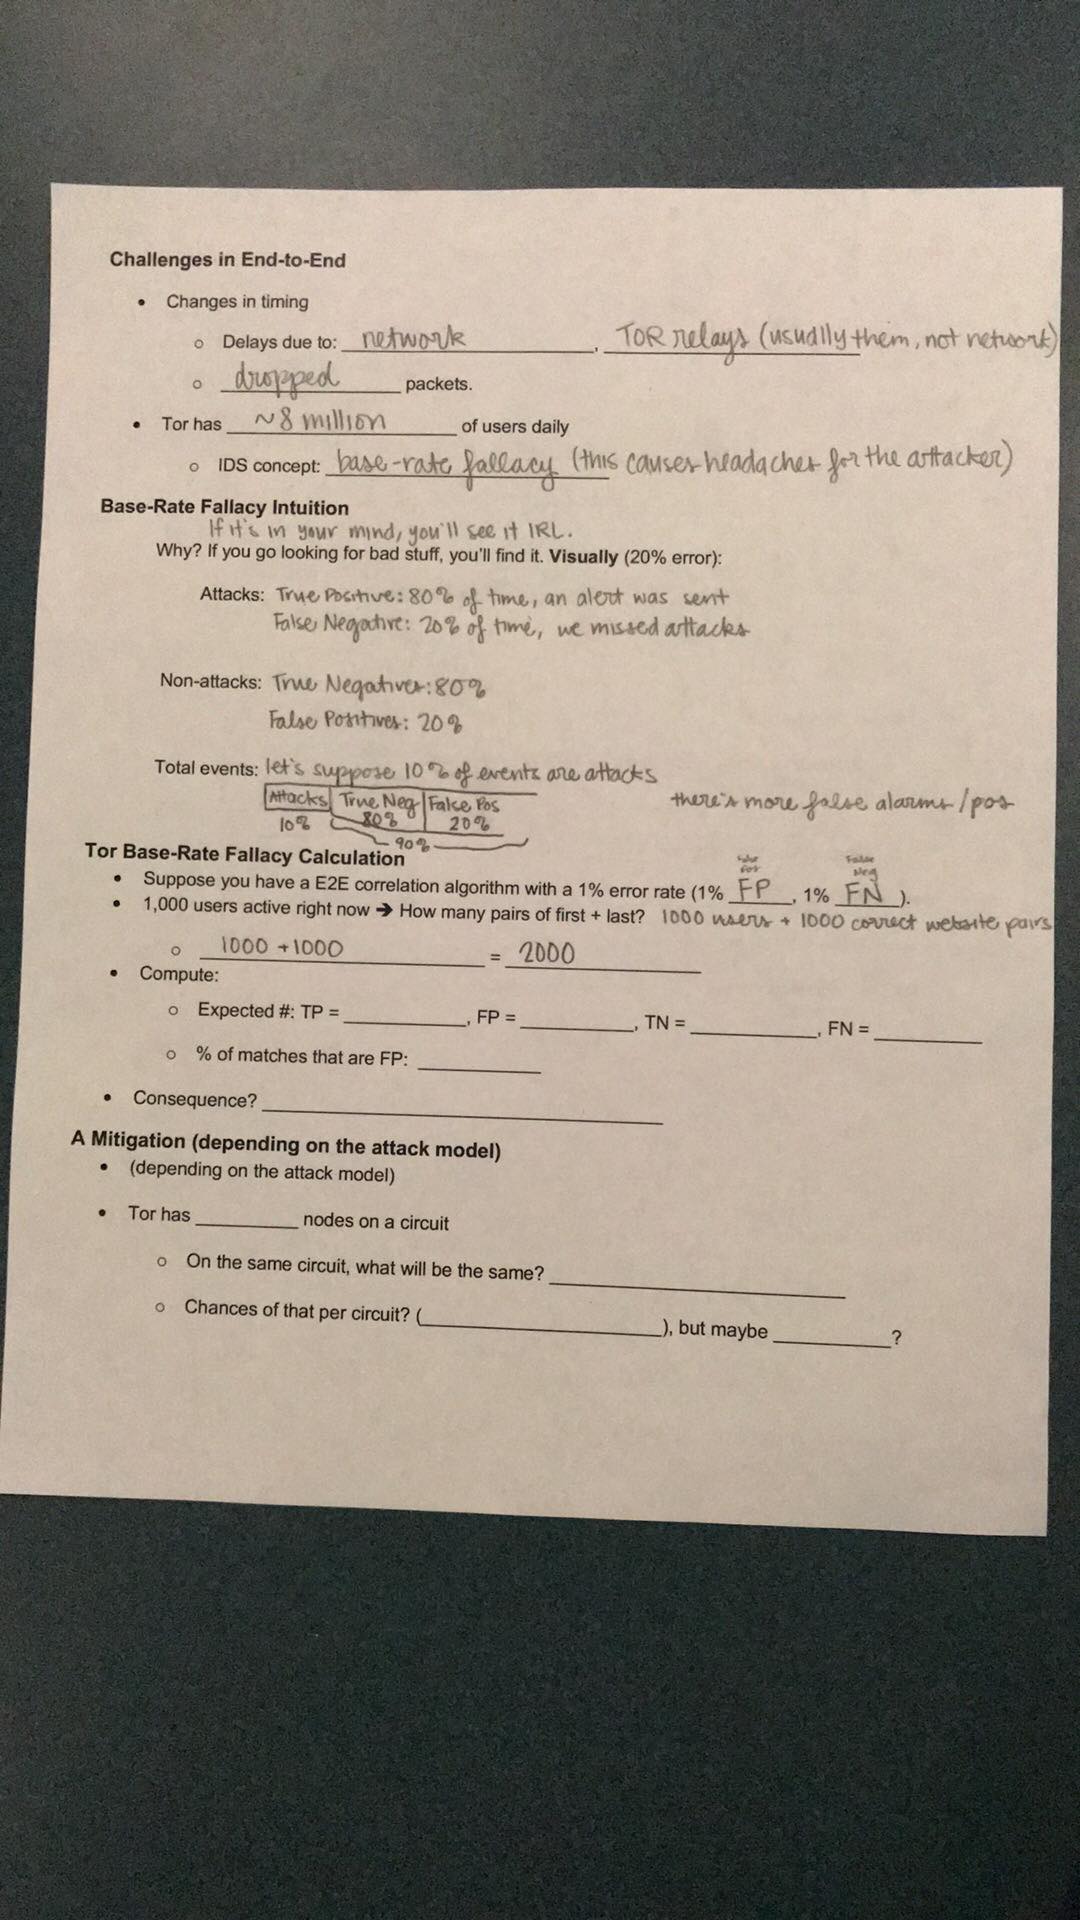 Challenges in End-to-End
• Changes in timing
o Delays due to: network, TOR relays (usually them, not network)
o dropped packets.
• Tor has ~8 million of users daily
o IDS concept: base-rate fallacy (this causes headaches for the attacker)
Base-Rate Fallacy Intuition
If it's in your mind, you'll see it IRL.
Why? If you go looking for bad stuff, you'll find it. Visually (20% error):
Attacks: True Positive: 80% of time, an alert was sent
False Negative: 20% of time, we missed attacks
Non-attacks: True Negatives: 80%
False Positives: 20%
Total events: let's suppose 10% of events are attacks
Attacks True Neg False Pos there's more false alarms/pos
10% 80% 20%
90%
Tor Base-Rate Fallacy Calculation
False Pos False Neg
• Suppose you have a E2E correlation algorithm with a 1% error rate (1% FP, 1% FN).
• 1,000 users active right now ➔ How many pairs of first + last? 1000 users + 1000 correct website pairs
o 1000 + 1000 = 2000
• Compute:
o Expected #: TP = ________, FP = ________, TN = ________, FN = ________
o % of matches that are FP: ________
• Consequence? ________
A Mitigation (depending on the attack model)
• (depending on the attack model)
• Tor has ________ nodes on a circuit
o On the same circuit, what will be the same? ________
o Chances of that per circuit? (________), but maybe ________?